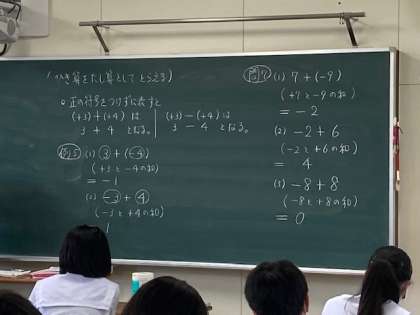 (ひき算をたし算としてとらえる)
◎正の符号をつけずに表すと
(+3)+(+4)は
3+4となる。
(+3)-(+4)は
3-4となる。
例5 (1) 3+(-4)
(+3と-4の和)
=-1
(2) -3+4
(-3と+4の和)
1
問7 (1) 7+(-9)
(+7と-9の和)
=-2
(2) -2+6
(-2と+6の和)
= 4
(3) -8+8
(-8と+8の和)
=0